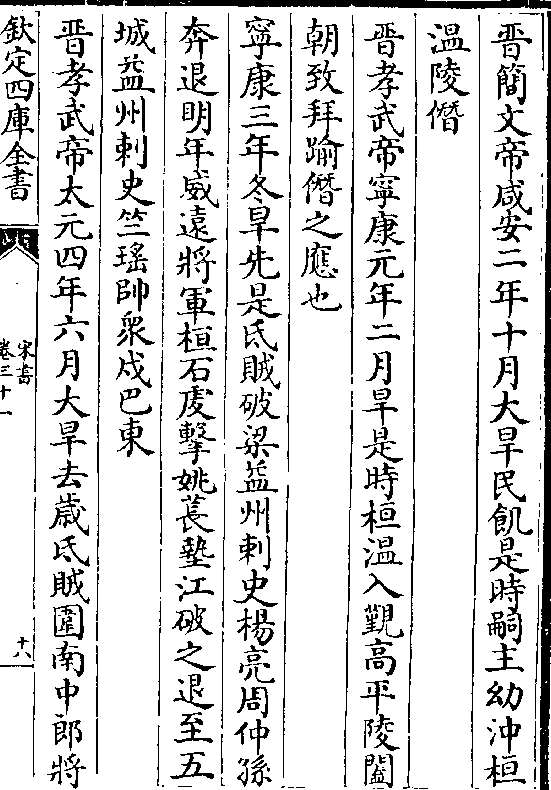 晉簡文帝咸安二年十月大旱民飢是時嗣主幼沖桓
溫陵僭
晉孝武帝寧康元年二月旱是時桓溫入覲高平陵闔
朝致拜踰僭之應也
寧康三年冬旱先是氐賊破梁益州刺史楊亮周仲孫
奔退明年威遠將軍桓石虔擊姚萇墊江破之退至五
城益州刺史竺瑤帥衆戍巴東
晉孝武帝太元四年六月大旱去歲氐賊圍南中郎將
欽定四庫全書
宋書
卷三十一
十八